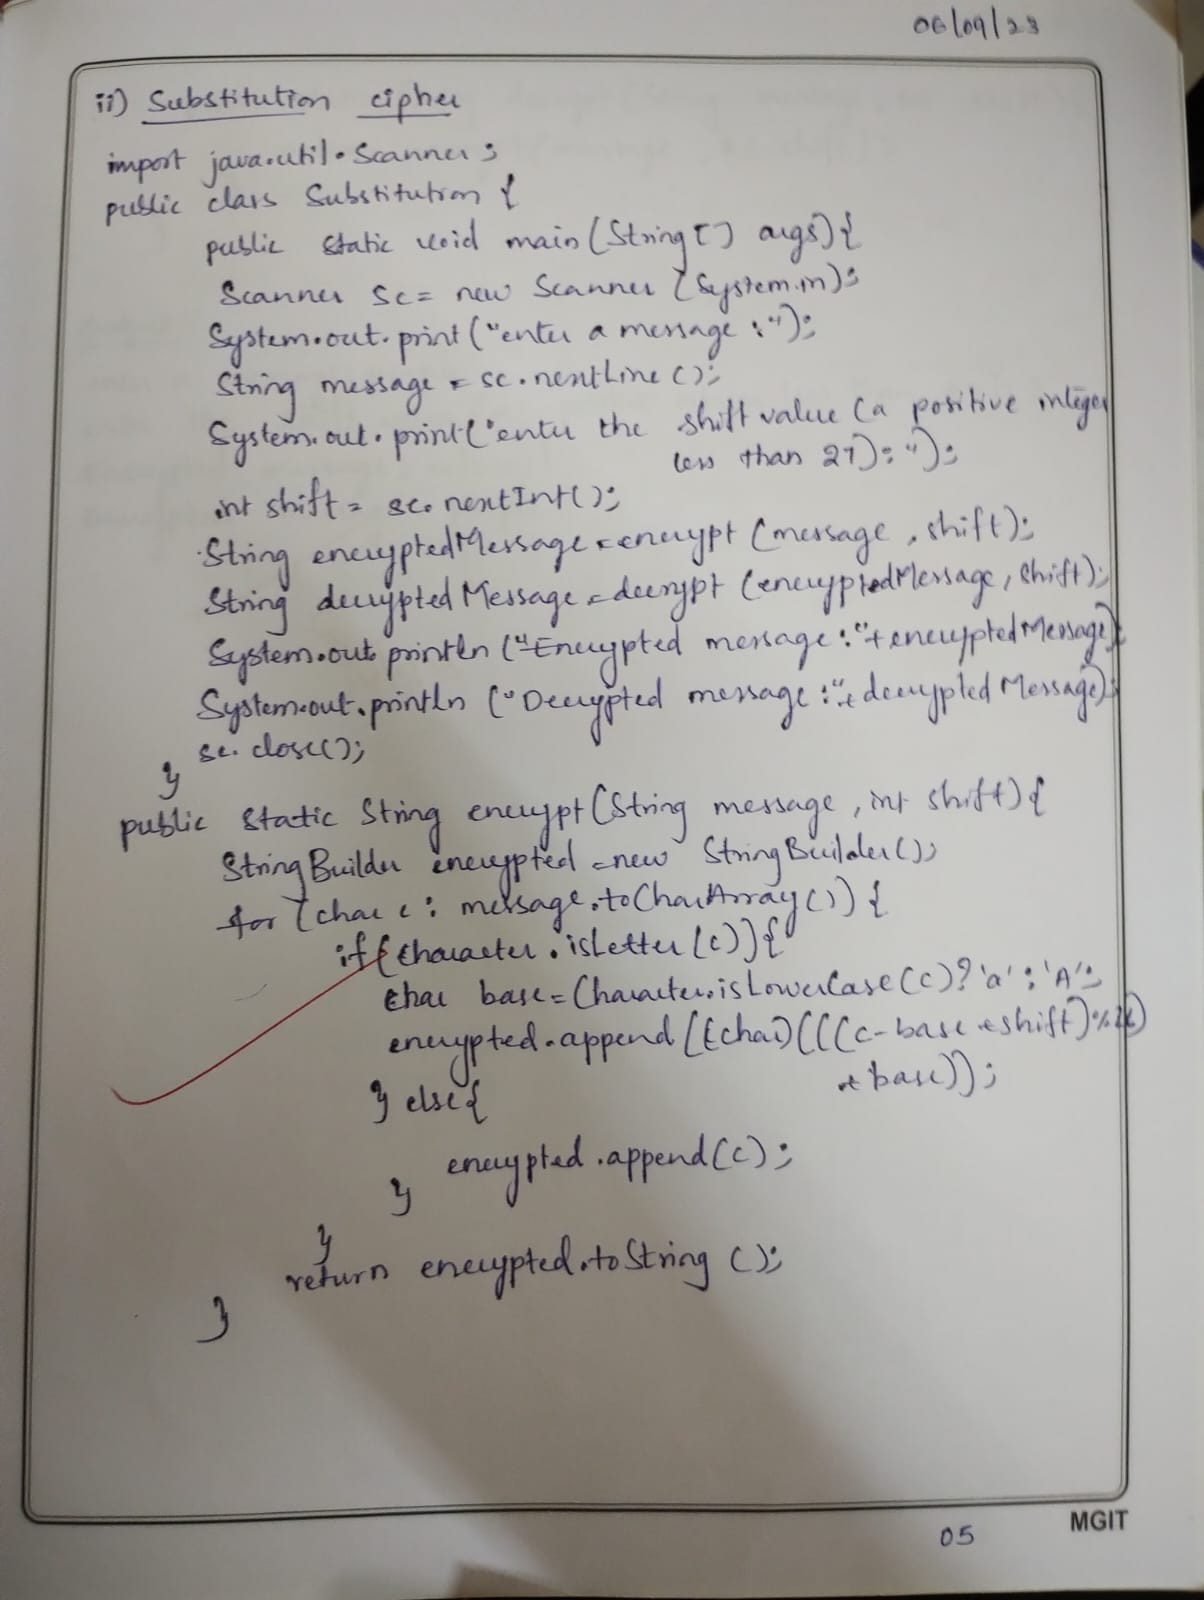 06/09/23
ii) Substitution cipher
import java.util.Scanner;
public class Substitution {
public static void main(String[] args){
Scanner sc= new Scanner (System.in);
System.out.print("enter a message :");
String message = sc.nextLine();
System.out.print("enter the shift value (a positive integer
less than 27):");
int shift = sc.nextInt();
String encryptedMessage=encrypt (message, shift);
String decryptedMessage=decrypt (encryptedMessage, shift);
System.out.println ("Encrypted message:"+encryptedMessage);
System.out.println ("Decrypted message:"+decryptedMessage);
sc.close();
}
public static String encrypt(String message, int shift){
StringBuilder encrypted =new StringBuilder();
for (char c: message.toCharArray()) {
if(Character.isLetter(c)){
char base=Character.isLowerCase(c)?'a':'A';
encrypted.append((char)(((c-base+shift)%26)
+base));
} else{
encrypted.append(c);
}
}
return encrypted.toString();
}
05
MGIT